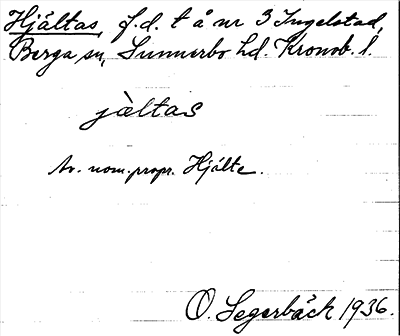 Hjältas, f.d. t å nr 3 Ingelstad,
Berga sn, Sunnerbo hd. Kronob. l.
jàltas
Av. nom. propr. Hjälte.
O. Segerbäck 1936.